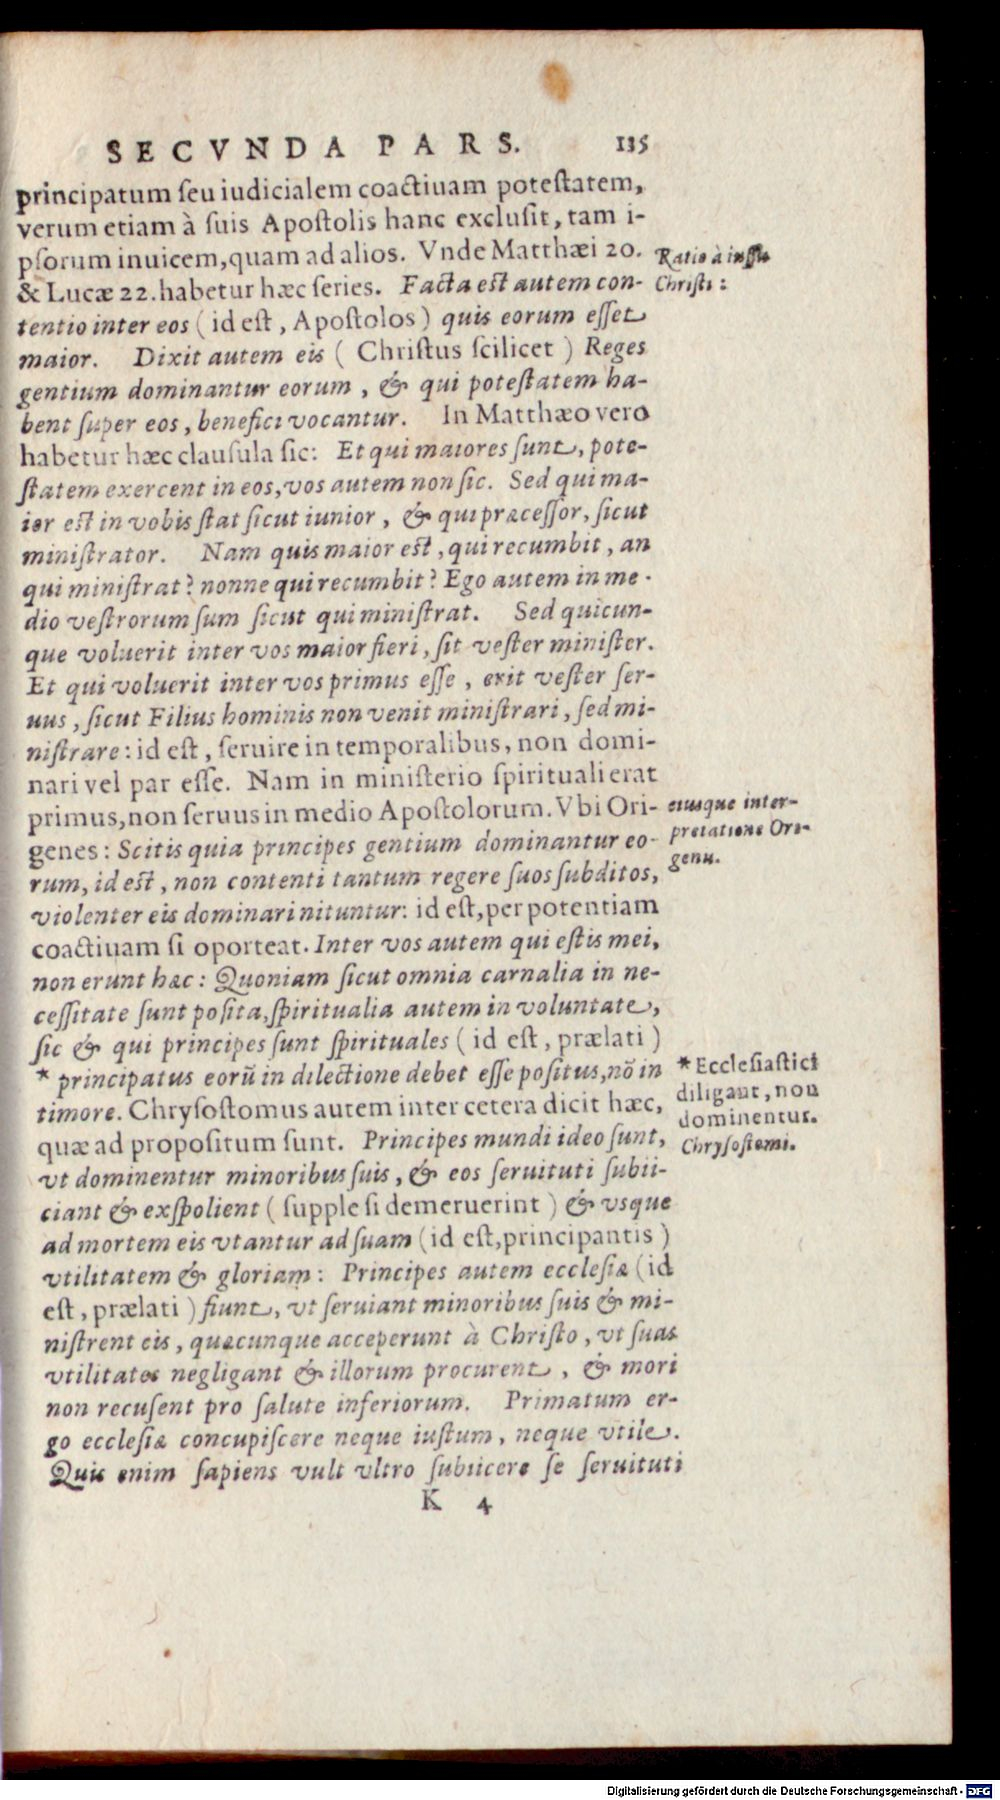 SECVNDA PARS. 135
principatum seu iudicialem coactiuam potestatem,
verum etiam à suis Apostolis hanc exclusit, tam i-
psorum inuicem, quam ad alios. Vnde Matthæi 20.
Ratio à iussu
& Lucæ 22. habetur hæc series. Facta est autem con-
Christi:
tentio inter eos (id est, Apostolos) quis eorum esset
maior. Dixit autem eis (Christus scilicet) Reges
gentium dominantur eorum, & qui potestatem ha-
bent super eos, benefici vocantur. In Matthæo vero
habetur hæc clausula sic: Et qui maiores sunt, pote-
statem exercent in eos, vos autem non sic. Sed qui ma-
ior est in vobis stat sicut iunior, & qui præcessor, sicut
ministrator. Nam quis maior est, qui recumbit, an
qui ministrat? nonne qui recumbit? Ego autem in me-
dio vestrorum sum sicut qui ministrat. Sed quicun-
que voluerit inter vos maior fieri, sit vester minister.
Et qui voluerit inter vos primus esse, erit vester ser-
uus, sicut Filius hominis non venit ministrari, sed mi-
nistrare: id est, seruire in temporalibus, non domi-
nari vel par esse. Nam in ministerio spirituali erat
primus, non seruus in medio Apostolorum. Vbi Ori-
eiusque inter-
genes: Scitis quia principes gentium dominantur eo-
pretatione Ori-
rum, id est, non contenti tantum regere suos subditos,
genis.
violenter eis dominari nituntur: id est, per potentiam
coactiuam si oporteat. Inter vos autem qui estis mei,
non erunt hæc: Quoniam sicut omnia carnalia in ne-
cessitate sunt posita, spiritualia autem in voluntate,
sic & qui principes sunt spirituales (id est, prælati)
* principatus eorũ in dilectione debet esse positus, nõ in
* Ecclesiastici
timore. Chrysostomus autem inter cetera dicit hæc,
diligant, non
dominentur.
quæ ad propositum sunt. Principes mundi ideo sunt,
Chrysostomi.
vt dominentur minoribus suis, & eos seruituti subii-
ciant & exspolient (supple si demeruerint) & vsque
ad mortem eis vtantur ad suam (id est, principantis)
vtilitatem & gloriam: Principes autem ecclesiæ (id
est, prælati) fiunt, vt seruiant minoribus suis & mi-
nistrent eis, quæcunque acceperunt à Christo, vt suas
vtilitates negligant & illorum procurent, & mori
non recusent pro salute inferiorum. Primatum er-
go ecclesiæ concupiscere neque iustum, neque vtile.
Quis enim sapiens vult vltro subiicere se seruituti
K 4
Digitalisierung gefördert durch die Deutsche Forschungsgemeinschaft - DFG